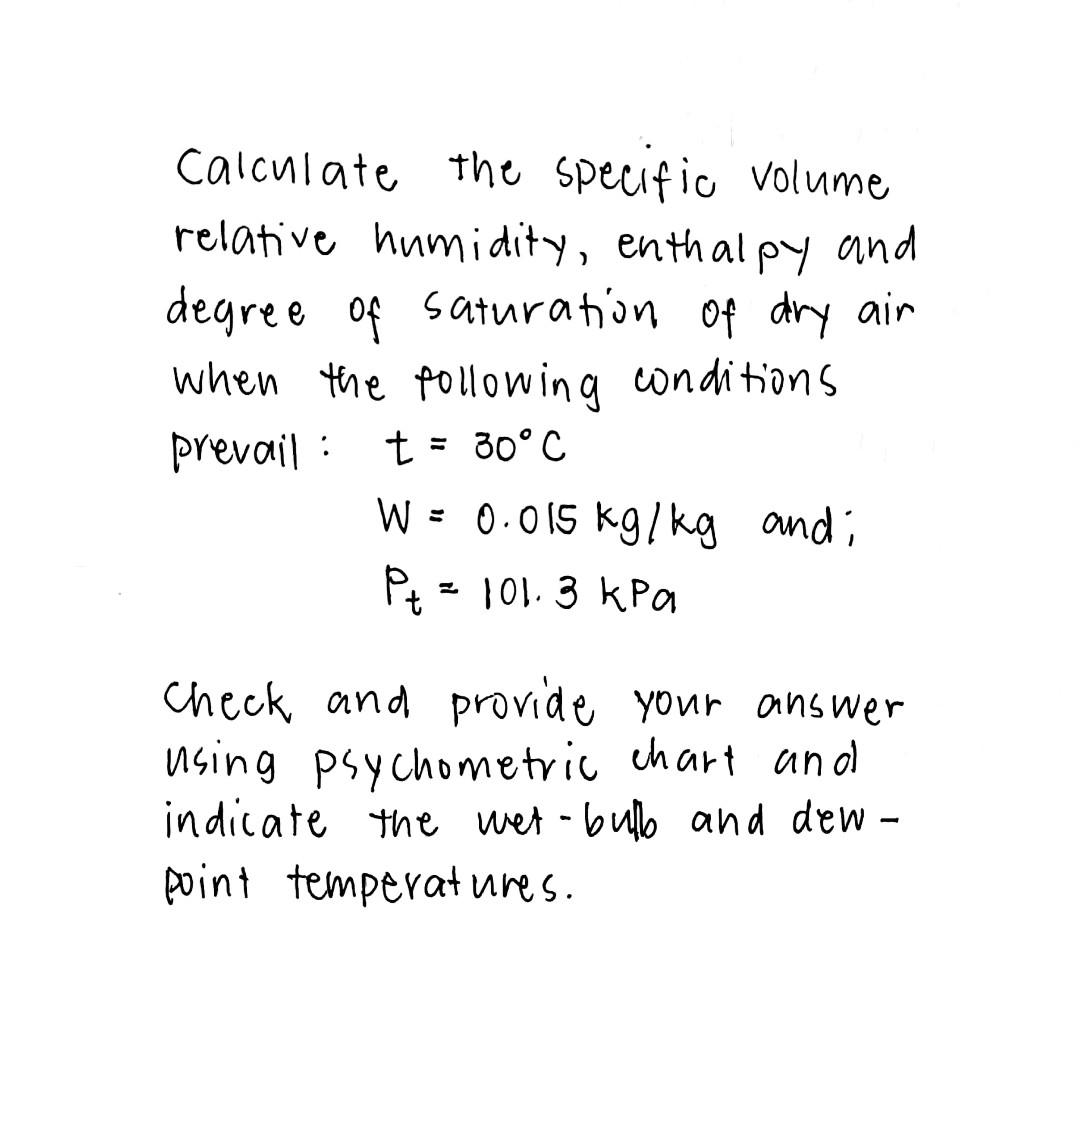 Calculate the specific volume
relative humidity, enthalpy and
degree of saturation of dry air
when the following conditions
prevail : t = 30°C
W = 0.015 kg/kg and;
Pt = 101.3 kPa
Check and provide your answer
using psychometric chart and
indicate the wet-bulb and dew-
point temperatures.